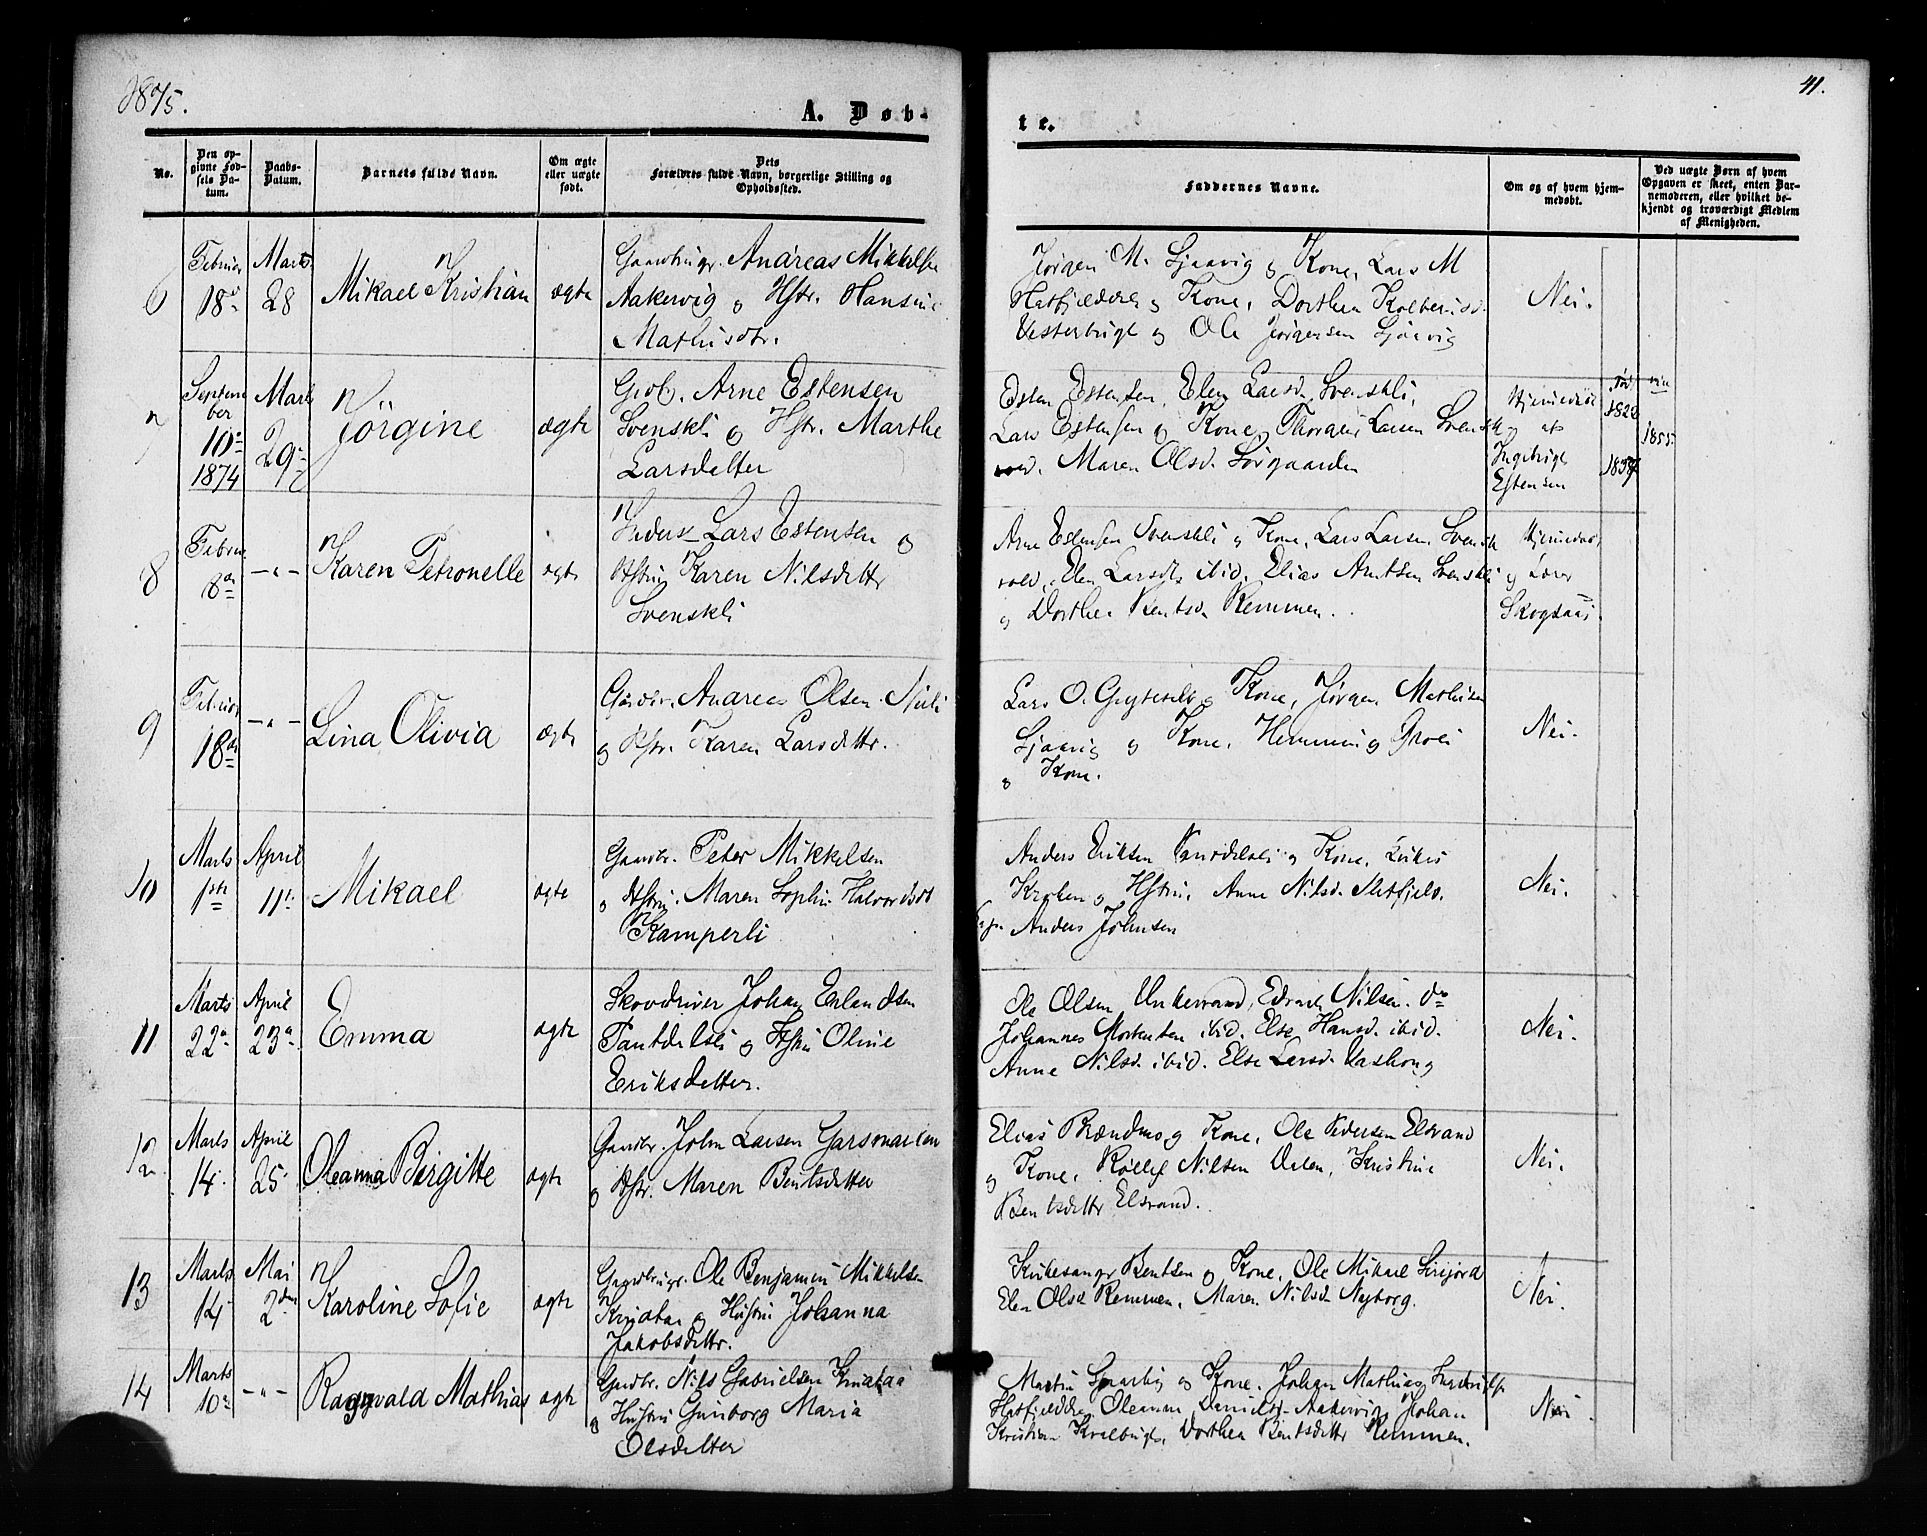 1875.
41.
A. Døb-
te.
No.
Den op-
givne Fød-
sels Da-
tum.
Daabs-
Datum.
Barnets fulde Navn.
Om ægte
eller uægte
født.
Dets
Forældres fulde Navn, borgerlige Stilling og
Opholdssted.
Faddernes Navne.
Om og af hvem hjem-
medøbt.
Ved uægte Børn af hvem
Opgaven er skeet, enten Bar-
nemoderen, eller hvilket be-
kjendt og troværdigt Medlem
af Menigheden.
6
Februar
18de
Marts
28
Mikael Kristian
ægte
Gaardbrugr. Andreas Mikkelsen
Aakervig og Hstr. Hansine
Mathisdtr.
Jørgen M. Sjaavig og Kone, Lars M
Hatfjelddal og Kone, Dorthea
og Ole Jørgensen Sjaavig
Nei.
7
Septem
ber
10de
1874
Marts
29
Jörgine
ægte
Arne Estensen
Svenskli og Hstr. Marthe
Larsdatter
Esten Estensen, Elen Larsd. Svenskli,
Lars Estensen og Kone, Larsen Svensk
vold. Maren Olsd. Sørgaarden
Hjemmedøbt
af
Ingebrigt
Estensen
1855
8
Februar
8de
- " -
Karen Petronelle
ægte
Lars Estensen og
Hstru Karen Nilsdatter
Svenskli
Arne Estensen Svenskli og Kone, Lars Larsen Svensk
vold, Elen Larsdtr ibid. Elias Arntsen Svenskli
og Dorthea Bentsd. Remmen.
Hjemmedøbt
Lærer
Skogsaas.
9
Februar
18de
- " -
Lina Olivia
ægte
Gaardbr. Andreas Olsen
og Hstr. Karen Larsdattr.
Lars O. og Kone, Jørgen Mathisen
Sjaavig og Kone, Hemming
og Kone.
Nei.
10
Marts
1ste
April
11te
Mikael
ægte
Gaardbr. Peter Mikkelsen
og Hstru. Maren Sophie Halvordsdt
Kamperli
Anders Eriksen og Kone,
og Hstru, Anne Nilsd. Hatfjeld.
Anders Johnsen
Nei.
11
Marts
22de
April
23de
Emma
ægte
Skovdriver Johan Erlandsen
og Hstru Oline
Eriksdatter.
Ole Olsen Unkervand, Nilsen do
Johannes Mortensen ibid. Else Hansd. ibid.
Anne Nilsd. ibid. Else Larsd.
Nei.
12
Marts
14
April
25
Oleanna Birgitte
ægte
Gaardbr. John Larsen Garsmarken
og Hstr. Maren Bentsdatter
Elias Brændmo og Kone, Ole Pedersen Elsvand
og Kone, Nilsen Kristine
Bentsdattr Elsvand.
Nei.
13
Marts
14
Mai
2den
Karoline Sofie
ægte
Gaardbrugr. Ole Benjamin Mikkelsen
og Hustru Johanna
Jakobsdattr.
Kirkesanger Bentsen og Kone, Ole Mikael
Elen Olsd Remmen, Maren Nilsd. Nyborg.
Nei.
14
Marts
10de
- " -
Ragnvald Mathias
ægte
Gaardbr. Nils Gabrielsen
og Hustru Gunborg Maria
Olsdatter
Martin og Kone, Johan Mathias
Hatfjelddal, Oleanna Danielsd. Aakervig, Johan
Kristian, Dorthea Bentsdattr Remmen.
Nei